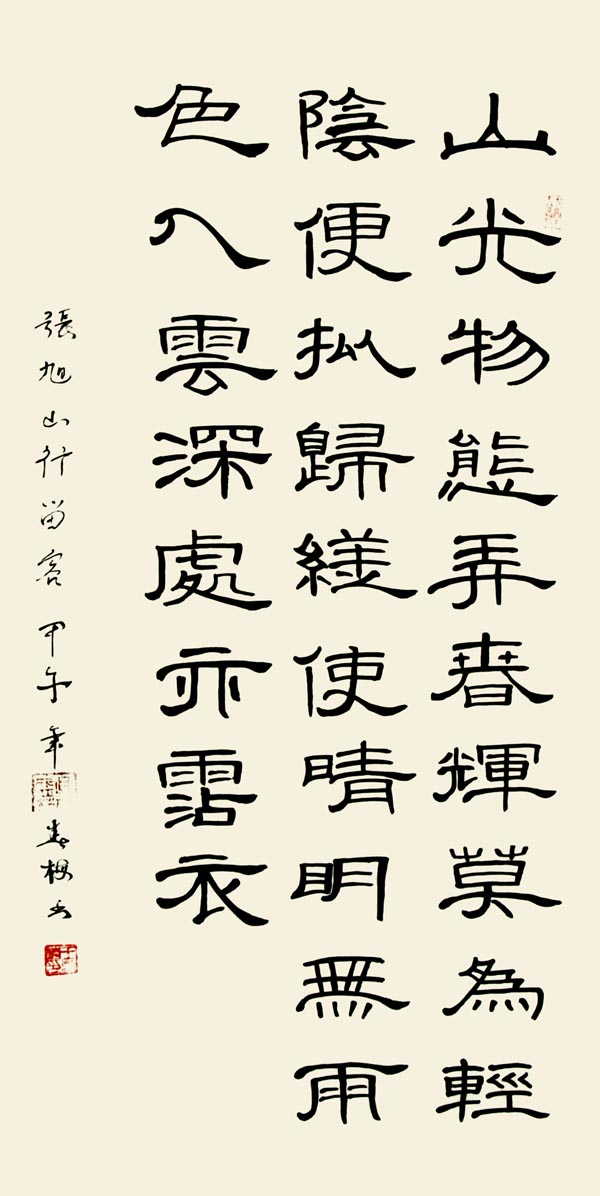 山光物態弄春輝莫為輕
陰便拟歸縱使晴明無雨
色入雲深處亦霑衣
張旭山行留客 甲午年 梅书